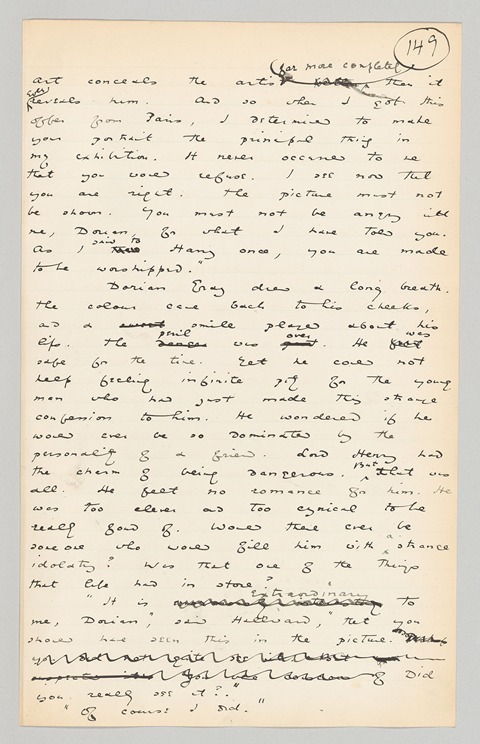 149
far more completely
art conceals the artist than it
ever reveals him. And so when I got this
offer from Paris, I determined to make
your portrait the principal thing in
my exhibition. It never occurred to me
that you would refuse. I see now that
you are right. The picture must not
be shown. You must not be angry with
me, Dorian, for what I have told you.
As I said to Harry once, you are made
to be worshipped."
Dorian Gray drew a long breath.
The colour came back to his cheeks,
and a smile played about his
lips. The peril was over. He was
safe for the time. Yet he could not
help feeling infinite pity for the young
man who had just made this strange
confession to him. He wondered if he
would ever be so dominated by the
personality of a friend. Lord Henry had
the charm of being dangerous. But that was
all. He felt no romance for him. He
was too clever and too cynical to be
really fond of. Would there ever be
someone who would fill him with a strange
idolatry? Was that one of the things
that life had in store?
"It is extraordinary to
me, Dorian," said Hallward, "that you
should have seen this in the picture.
Did
you really see it?"
"Of course I did."